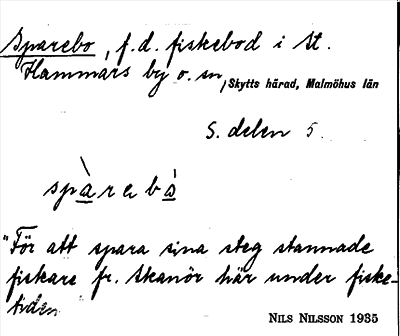 Sparebo, f.d. fiskebod i St.
Hammars by o. sn, Skytts härad, Malmöhus län
S. delen 5.
spàrebà
"För att spara sina steg stannade
fiskare fr. Skanör här under fiske-
tiden
NILS NILSSON 1935